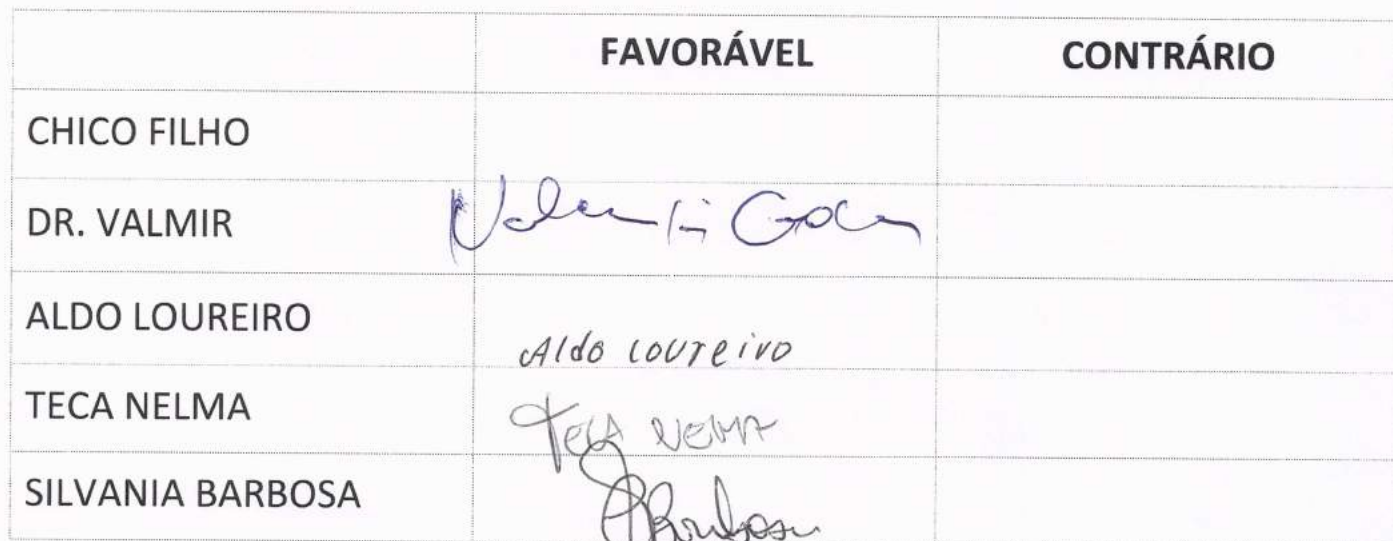 FAVORÁVEL CONTRÁRIO
CHICO FILHO
DR. VALMIR
ALDO LOUREIRO Aldo Loureiro
TECA NELMA TECA NELMA
SILVANIA BARBOSA SBarbosa